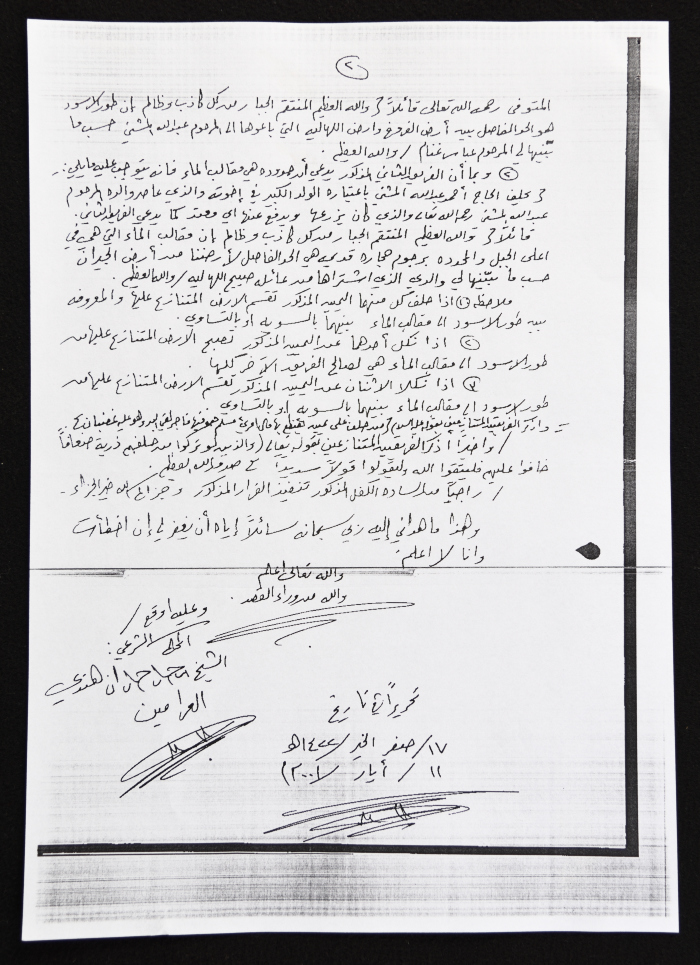 ٢
المتوفى رحمه الله تعالى قائلاً والله العظيم المنتقم الجبار من كل كاذب وظالم إن طور الاسود
هو الحد الفاصل بين أرض الفروخ وارض اللهاليه التي باعوها الى المرحوم عبدالله المشني حسب ما
بينها لي المرحوم عباس غنام / والله العظيم.
٢ وبما أن الفريق الثاني المذكور يدعي أن حدوده هي مقالب الماء فانه يتوجب عليه مايلي :-
يحلف الحاج أحمد عبدالله المشني باعتباره الولد الكبير في إخوته والذي عاصر والده المرحوم
عبدالله المشني رحمه الله تعالى والذي كان يزرعها ويدفع عنها اي معتدٍ كما يدعي الفريق الثاني.
قائلاً والله العظيم المنتقم الجبار من كل كاذب وظالم إن مقالب الماء التي هي في
اعلى الجبل والمحدوده برجوم حجاره قديمه هي الحد الفاصل لأرضنا من أرض الجيران
حسب ما بينها لي والدي الذي اشتراها من عائلة صبيح اللهاليه / والله العظيم.
ملاحظه ١ اذا حلف كل منهما اليمين المذكور تقسم الارض المتنازع عليها والمعروفه
بين طور الاسود الى مقالب الماء بينهما بالسويه او بالتساوي.
٢ اذا نكل أحدهما عن اليمين المذكور تصبح الارض المتنازع عليها من
طور الاسود الى مقالب الماء هي لصالح الفريق الآخر كلها.
٣ اذا نكلا الاثنان عن اليمين المذكور تقسم الارض المتنازع عليها من
طور الاسود الى مقالب الماء بينهما بالسويه او بالتساوي
واذكر الفريقين المتنازعين بقوله عليه السلام من حلف على يمين يقتطع بها مال امرئ مسلم هو فيها فاجر لقي الله وهو عليه غضبان
/ واخيراً أذكر الفريقين المتنازعين بقول تعالى (والذين لو تركوا من خلفهم ذرية ضعافاً
خافوا عليهم فليتقوا الله وليقولوا قولاً سديداً) صدق الله العظيم.
/ راجياً من الساده الكفل المذكور تنفيذ القرار المذكور وجزاكم الله خير الجزاء.
وهذا ما هداني إليه ربي سبحانه سائلاً إياه أن يغفر لي إن اخطأت
وانا لا اعلم.
والله تعالى اعلم
والله من وراء القصد.
وعليه اوقع /
المحكم الشرعي :
الشيخ هندي
العرامين
تحريراً في تاريخ
١٧/ صفر الخير / ١٤٢٢هـ
١١ / أيار / ٢٠٠١م